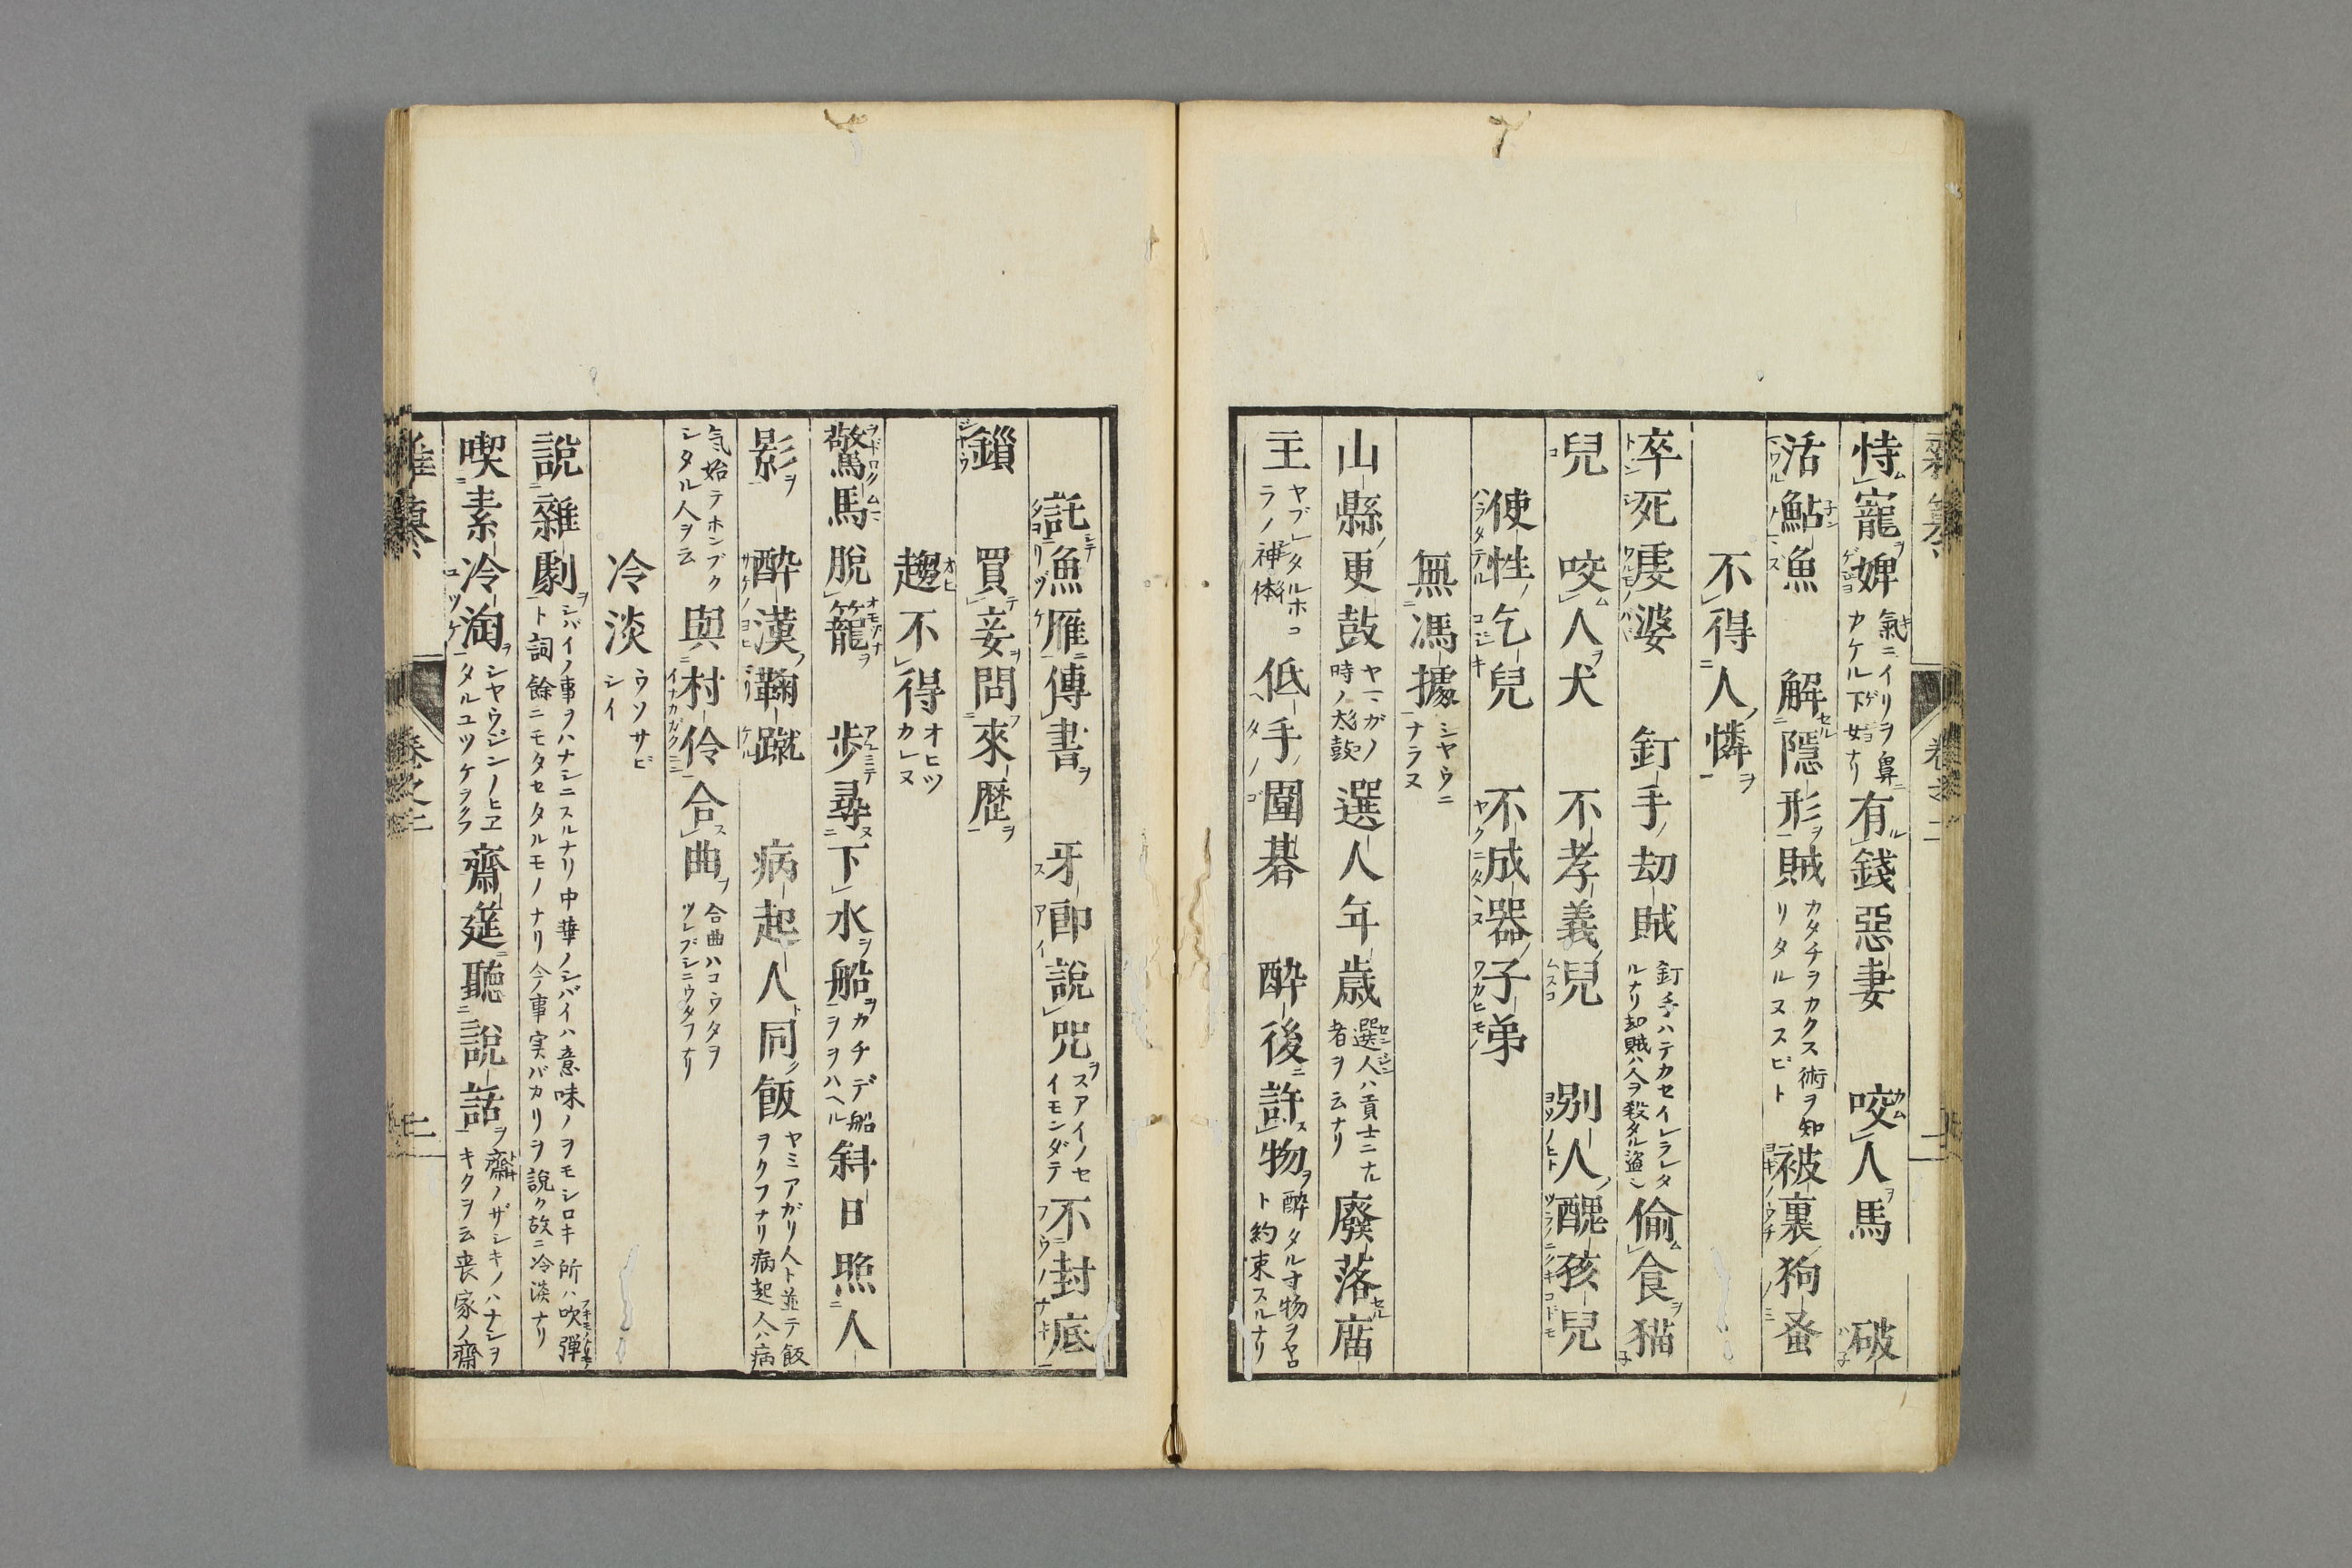 恃寵婢 氣ニイリヲ鼻ニカケル下女ナリ 有錢惡妻 咬人馬 破
活鮎魚 解隱形賊 カタチヲカクス術ヲ知リタルヌスビト 被裏狗蚤
不得人憐
卒死虔婆 釘手劫賊 釘手ハテカセイレラレタルナリ劫賊ハ人ヲ殺タル盗 偷食猫
兒 咬人犬 不孝義兒 別人醜孩兒
使性乞兒 不成器子弟
無馮據 シヤウニナラヌ
山縣更鼓 ヤマガノ時ノ太鼓 選人年歳 選人ハ貢士ニナル者ヲ云ナリ 廢落庙
主 ヤブレタルホコラノ神体 低手圍碁 醉後許物 醉タル寸物ヲヤロト約束スルナリ
託魚雁傳書 牙郎說咒 スアイノセイモンダテ 不封底
鎻 買妾問來歷
趨不得 オヒツカレヌ
驚馬脫籠 歩尋下水船 カチデ船ヲヲハヘル 斜日照人
影 醉漢鞠蹴 病起人同飯 ヤミアガリ人ト並テ飯ヲクフナリ病起人ハ病
気始テホンブクシタル人ヲ云 與村伶合曲 合曲ハコウタヲツレブシニウタフナリ
冷淡 ウソサビシイ
說雜劇 シバイノ事ヲハナシニスルナリ中華ノシバイハ意味ノヲモシロキ所ハ吹彈ト詞餘ニモタセタルモノナリ今事実バカリヲ說ク故ニ冷淡ナリ
喫素冷淘 シヤウジンノヒヱタルユツケヲクフ 齋筵聽說話 齋ノザシキノハナシヲキクヲ云喪家ノ齋